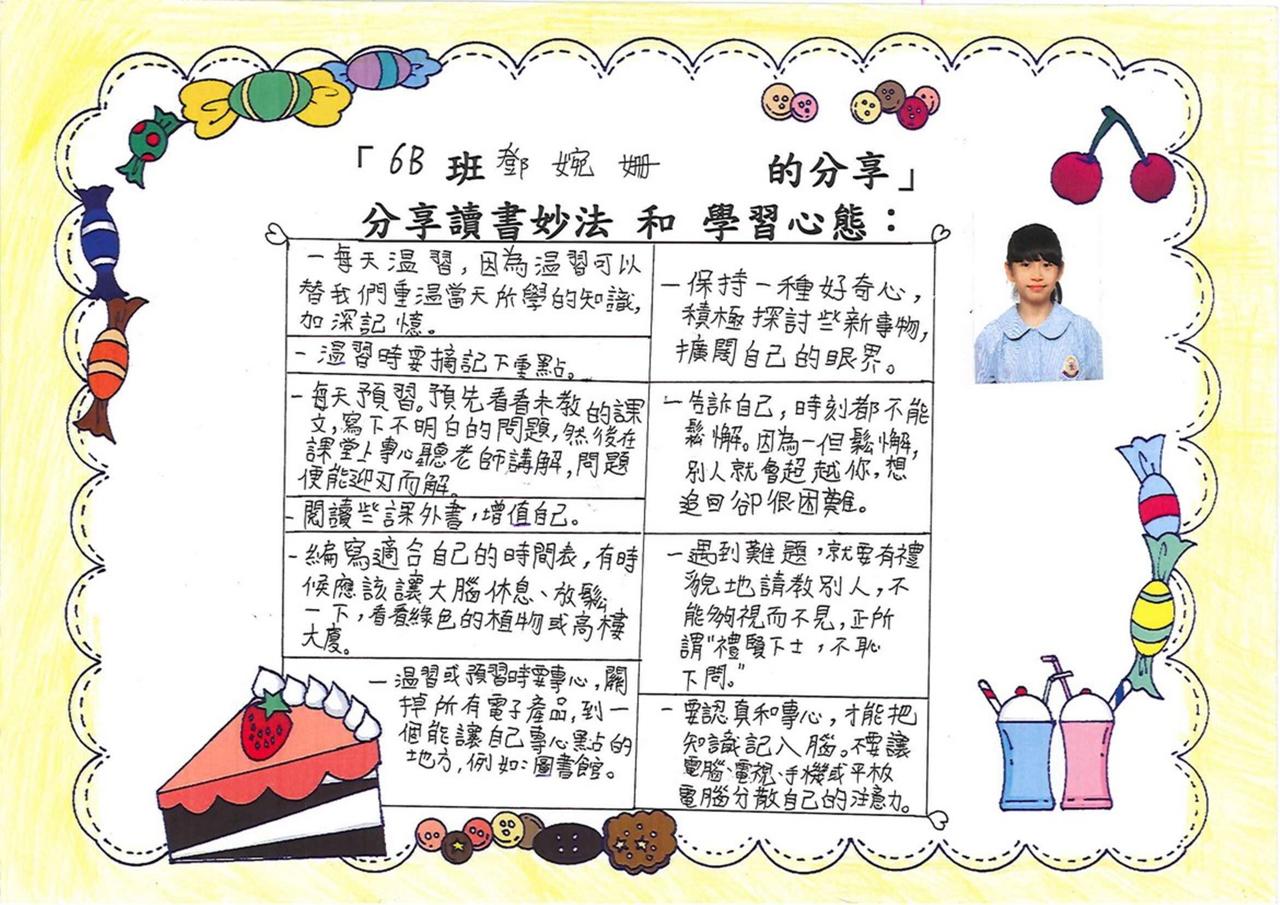 「6B 班 鄧婉姍 的分享」
分享讀書妙法 和 學習心態：
－每天温習，因為温習可以
替我們重温當天所學的知識，
加深記憶。
－温習時要摘記下重點。
－每天預習。預先看看未教的課
文，寫下不明白的問題，然後在
課堂上專心聽老師講解，問題
便能迎刃而解。
－閱讀些課外書，增值自己。
－編寫適合自己的時間表，有時
候應該讓大腦休息、放鬆
一下，看看綠色的植物或高樓
大廈。
－温習或預習時要專心，關
掉所有電子產品，到一
個能讓自己專心點的
地方，例如：圖書館。
－保持一種好奇心，
積極探討些新事物，
擴闊自己的眼界。
－告訴自己，時刻都不能
鬆懈。因為一但鬆懈，
別人就會超越你，想
追回卻很困難。
－遇到難題，就要有禮
貌地請教別人，不
能夠視而不見，正所
謂"禮賢下士，不恥
下問。"
－要認真和專心，才能把
知識記入腦。不要讓
電腦、電視、手機或平板
電腦分散自己的注意力。